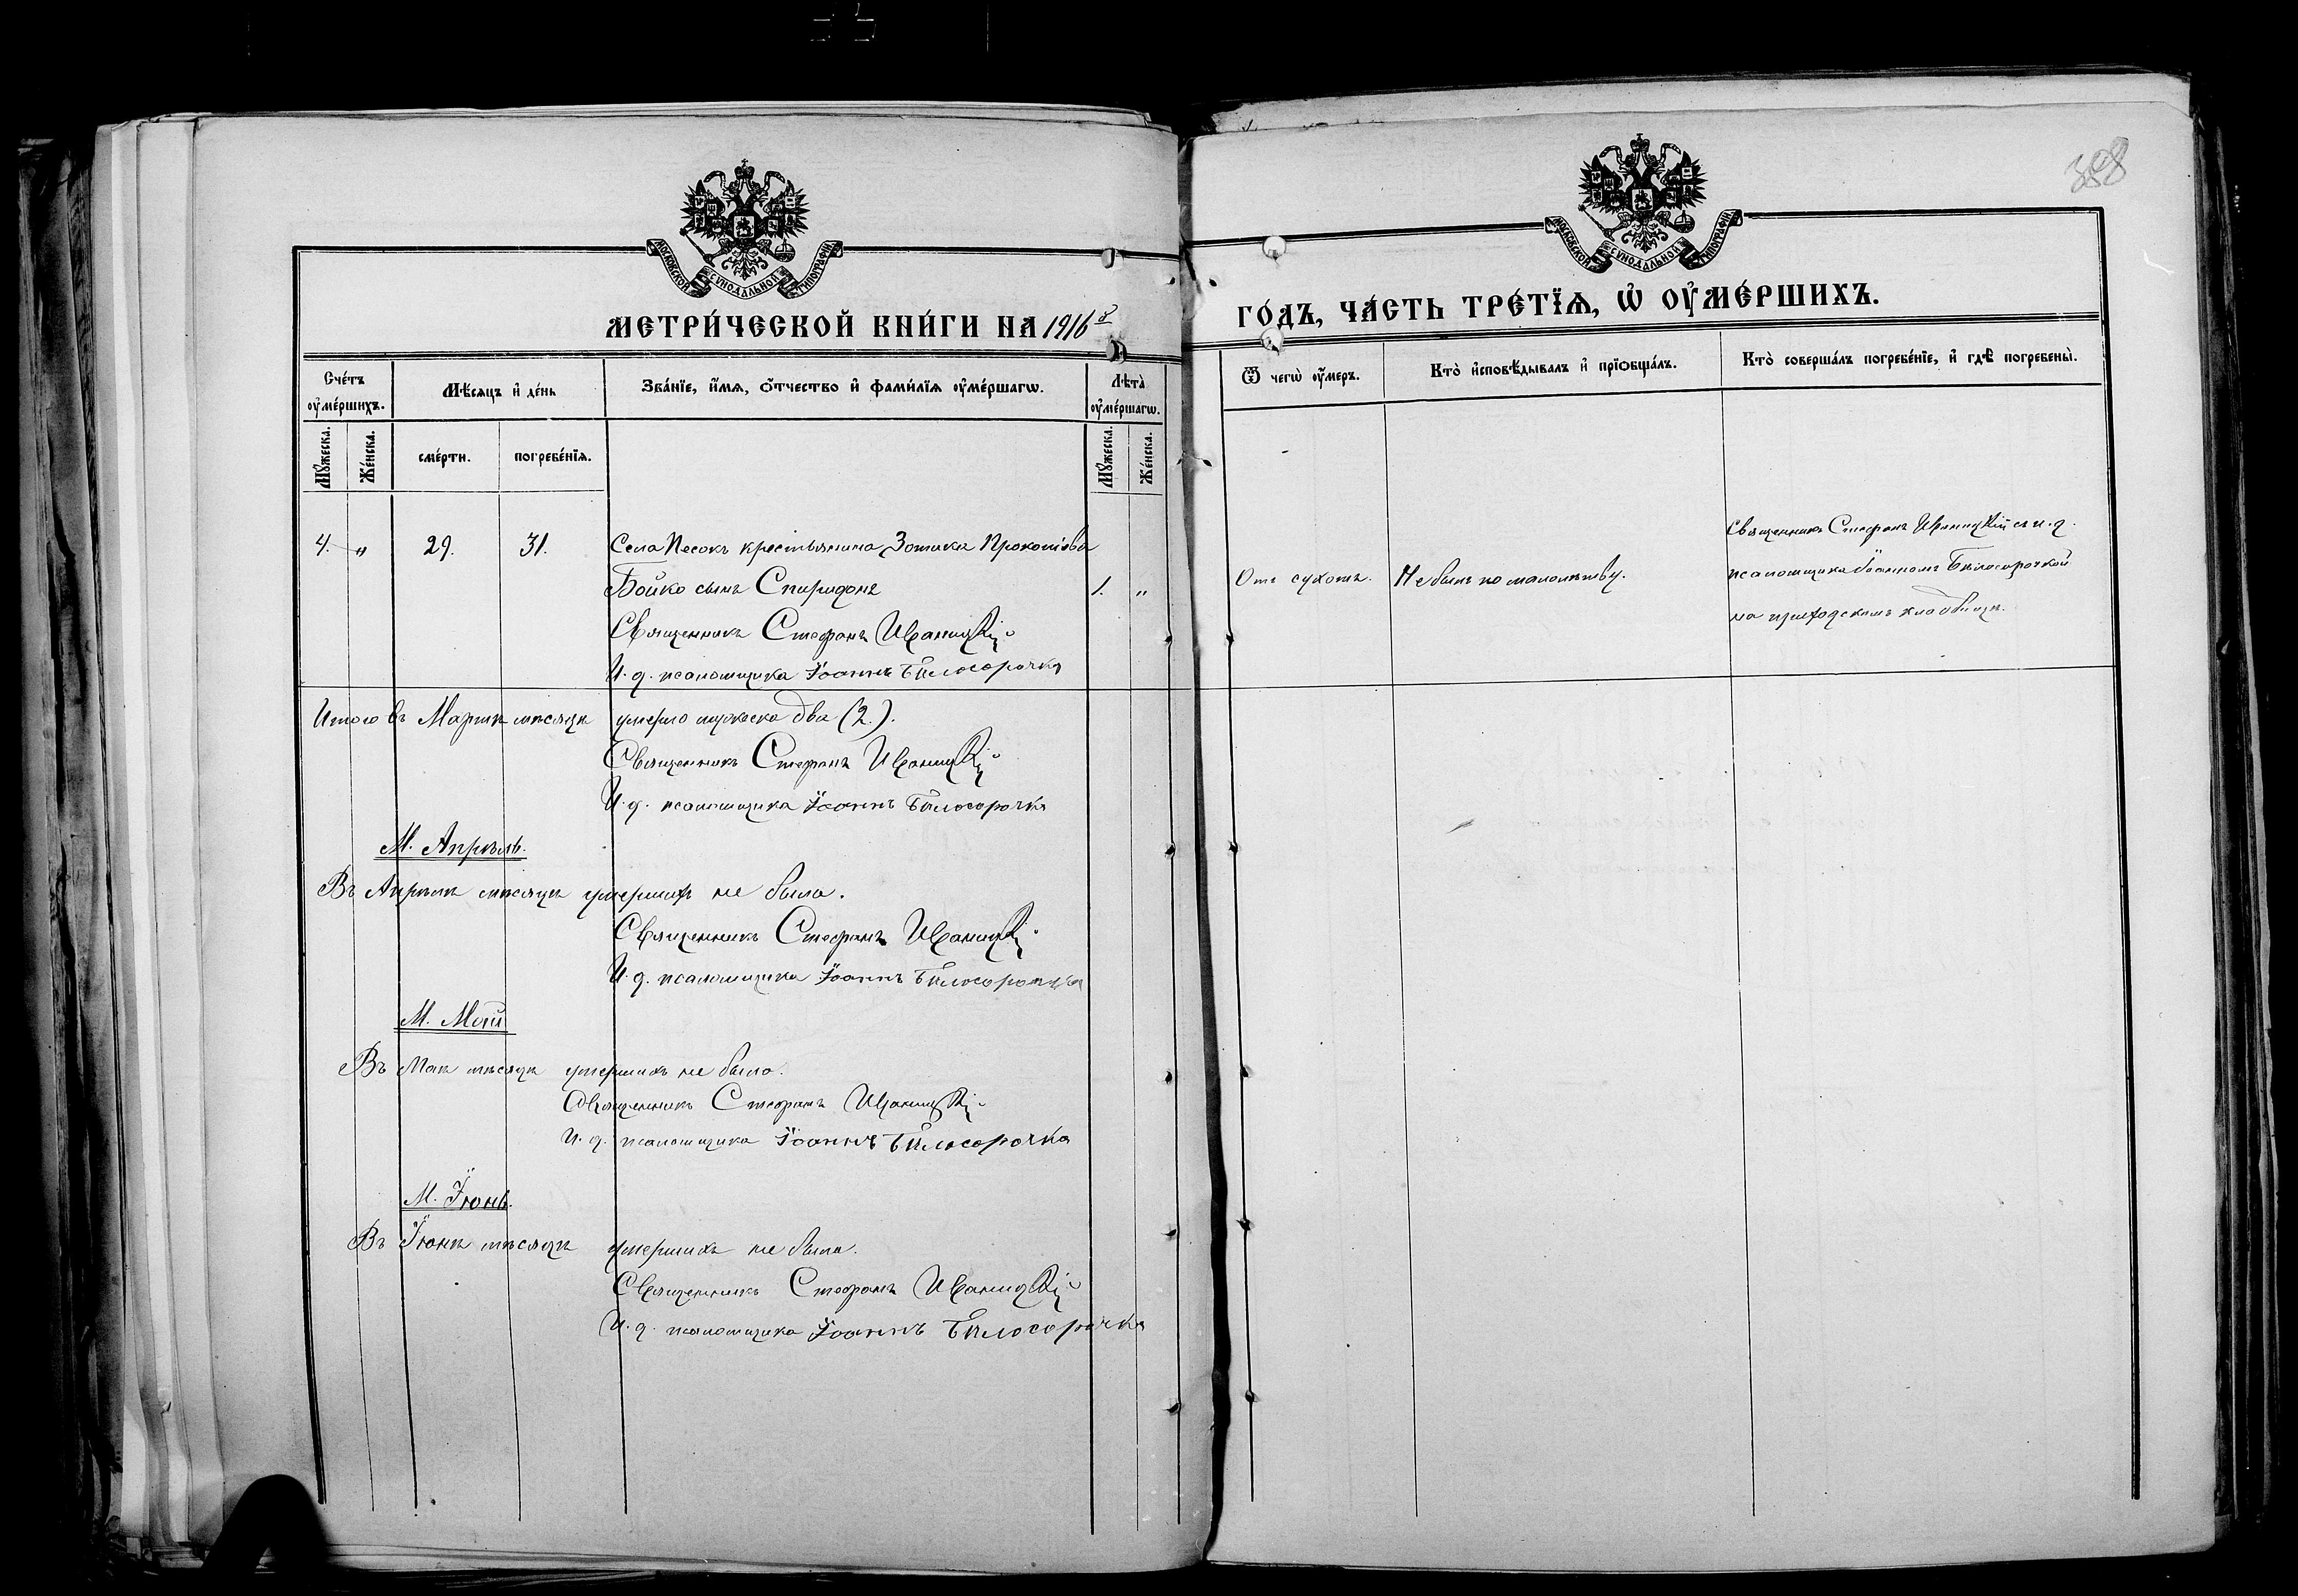 МОСКОВСКОЙ СУНОДАЛЬНОЙ ТИПОГРАФІИ
МЕТРИ́ЧЕСКОЙ КНИ́ГИ НА 1916й
Сче́тъ оу҆ме́ршихъ.
Мѣ́сяцъ и҆ де́нь
Зва́нїе, и҆́мѧ, ѻ҆́тчество и҆ фами́лїѧ оу҆ме́ршагѡ.
Лѣта̀ оу҆ме́ршагѡ.
Мꙋ́жеска.
Же́нска.
сме́рти.
погребе́нїѧ.
Мꙋ́жеска.
Же́нска.
4. " 29. 31. Села Песокъ крестьянина Зотика Прокопіева
Бойко сынъ Спиридонъ 1. "
Священникъ Стефанъ Иваницкій
И. д. псаломщика Іоаннъ Бѣлосорочка
Итого въ Мартѣ мѣсяцѣ умерло мужеска два (2.).
Священникъ Стефанъ Иваницкій
И. д. псаломщика Іоаннъ Бѣлосорочка
М. Апрѣль.
Въ Апрѣлѣ мѣсяцѣ умершихъ не было.
Священникъ Стефанъ Иваницкій
И. д. псаломщика Іоаннъ Бѣлосорочка
М. Май
Въ Маѣ мѣсяцѣ умершихъ не было.
Священникъ Стефанъ Иваницкій
И. д. псаломщика Іоаннъ Бѣлосорочка
М. Іюнь.
Въ Іюнѣ мѣсяцѣ умершихъ не было.
Священникъ Стефанъ Иваницкій
И. д. псаломщика Іоаннъ Бѣлосорочка
МОСКОВСКОЙ СУНОДАЛЬНОЙ ТИПОГРАФІИ
ГО́ДЪ, ЧА́СТЬ ТРЕ́ТЇѦ, Ѡ҆ ОУ҆МЕ́РШИХЪ.
Ѿ чегѡ̀ оу҆́меръ.
Кто̀ и҆сповѣ́дывалъ и҆ прїѻбща́лъ.
Кто̀ соверша́лъ погребе́нїе, и҆ гдѣ̀ погребены̀.
Отъ сухотъ.
Не былъ по малолѣтству.
Священникъ Стефанъ Иваницкій съ и. д.
псаломщика Іоанномъ Бѣлосорочкой
на приходскомъ кладбищѣ.